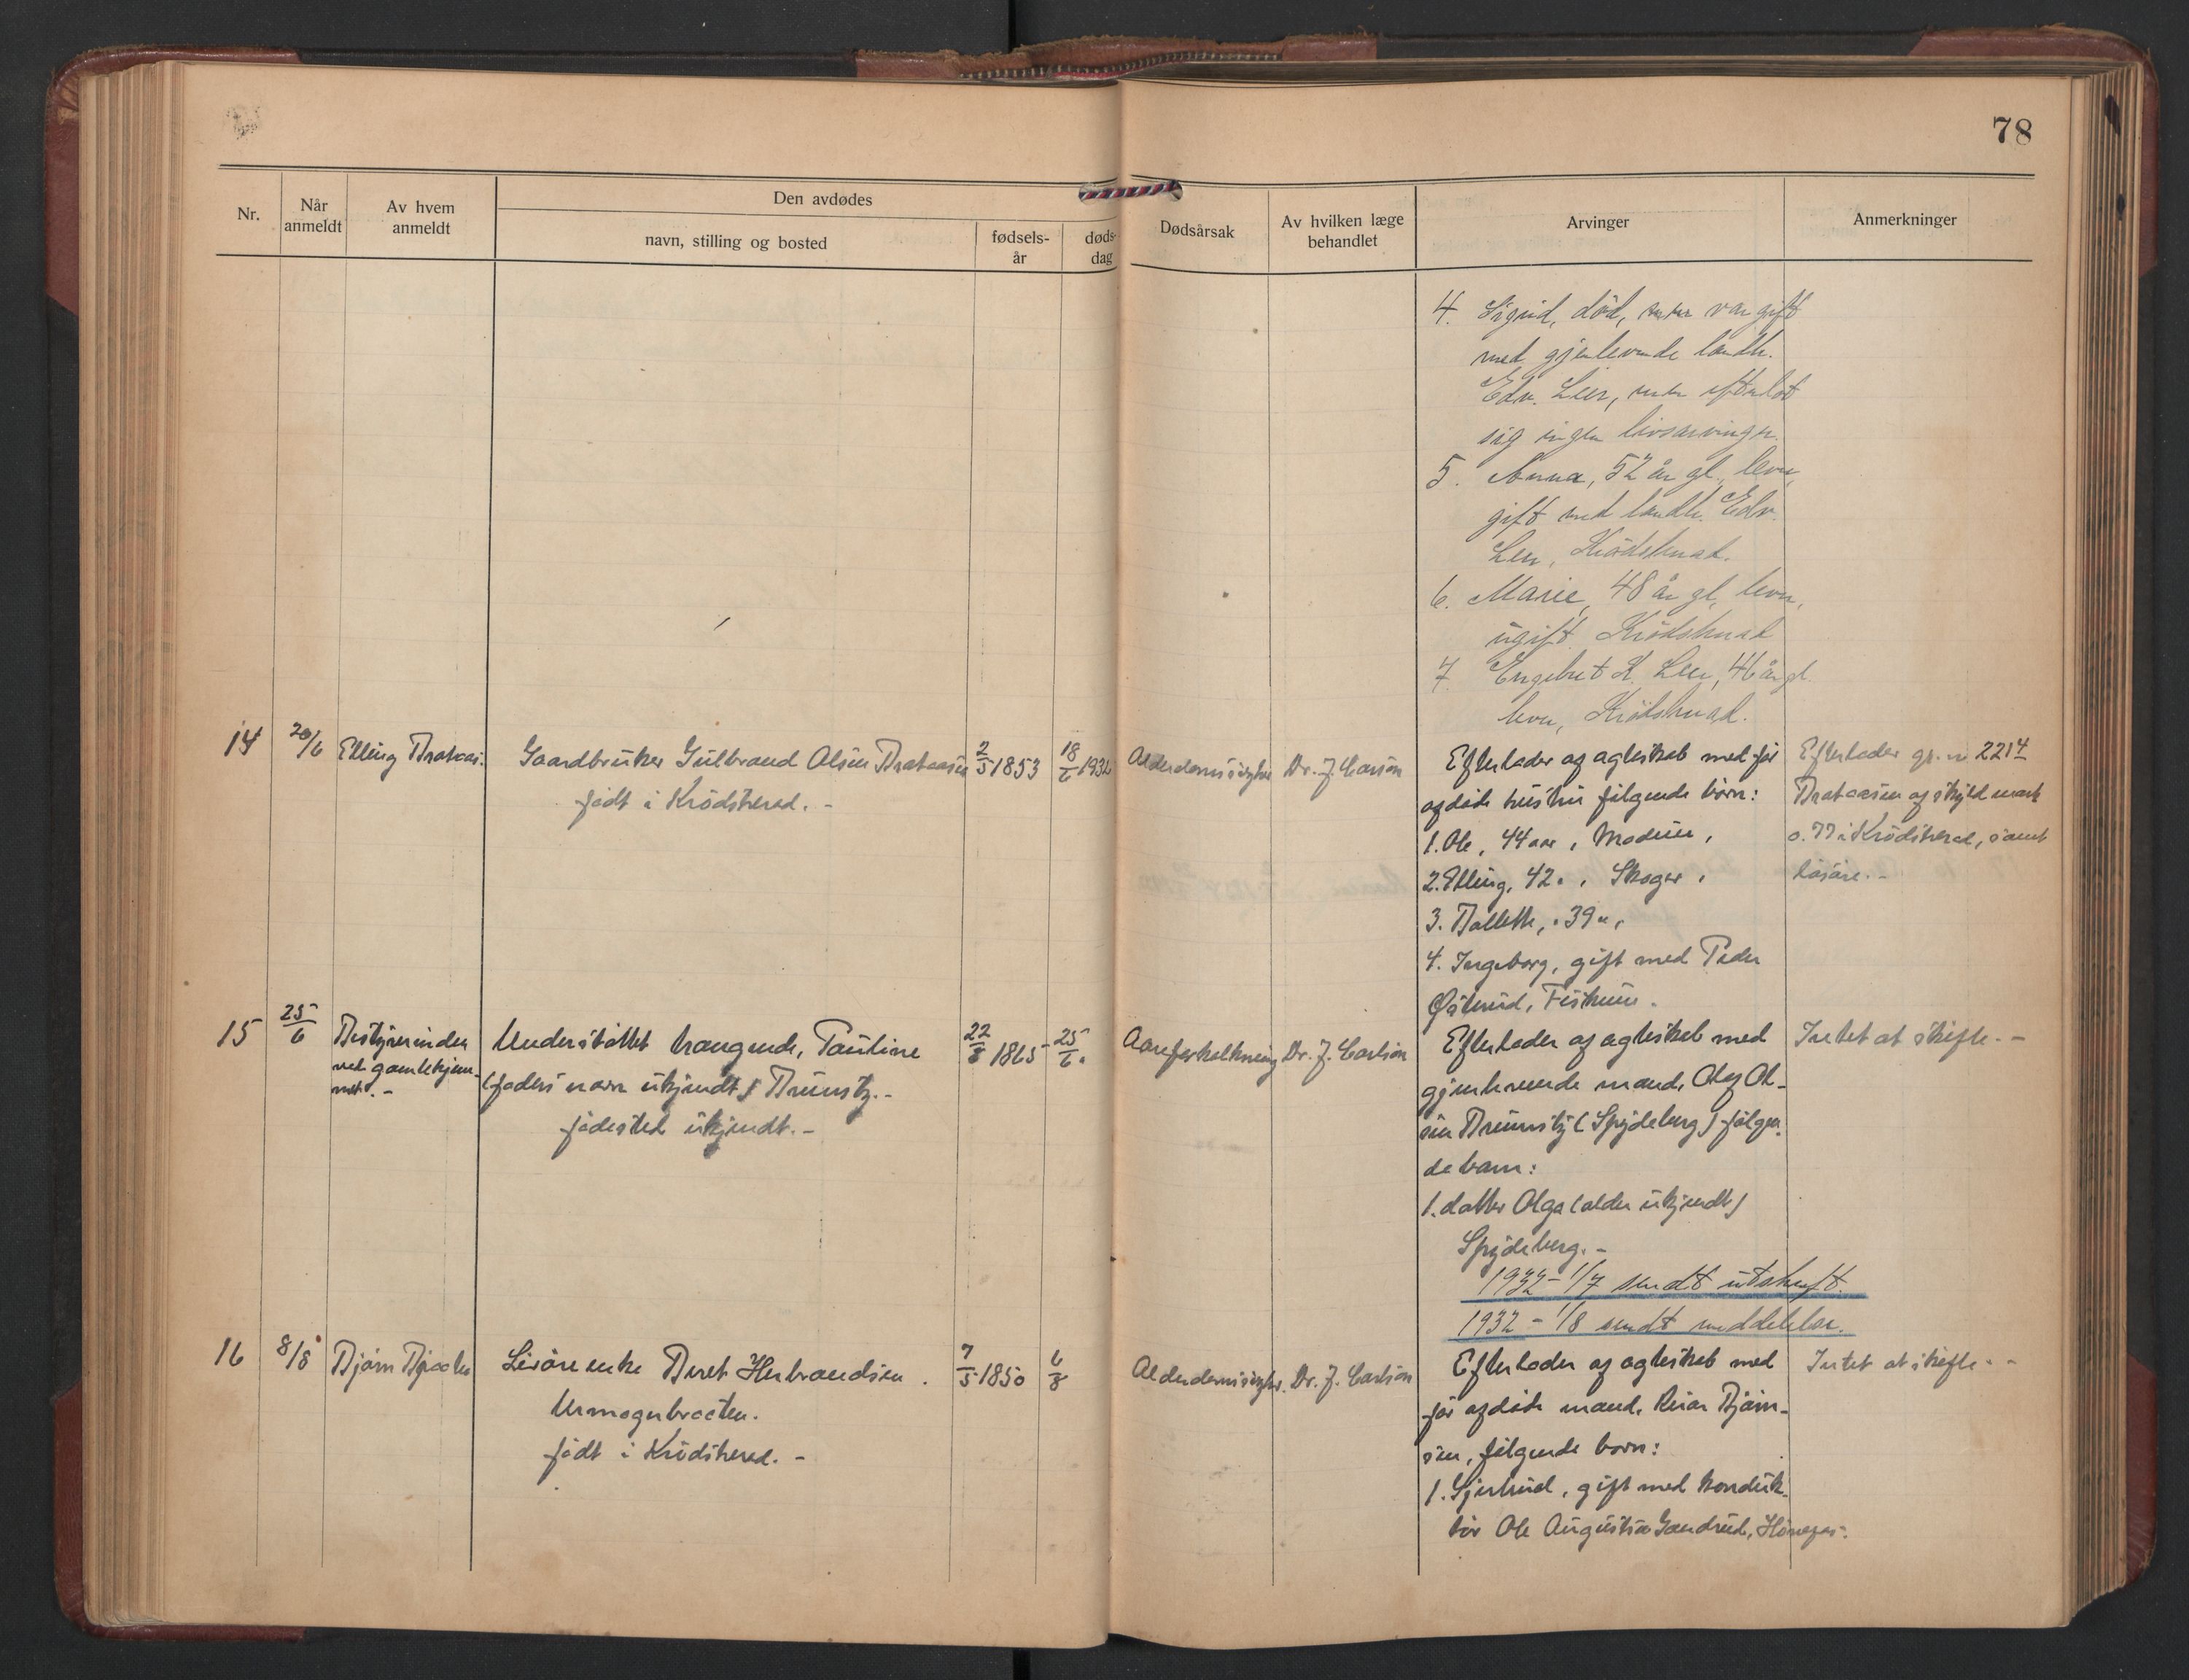 78
Nr.
Når anmeldt
Av hvem anmeldt
Den avdødes
navn, stilling og bosted
fødsels-år
døds-dag
Dødsårsak
Av hvilken læge behandlet
Arvinger
Anmerkninger
4. Sigrid, död, som var gift
med gjenlevende landh.
Edv. Leer, men efterlot
sig ingen livsarvinger.
5. Anna, 52 år gl., lever,
gift med landh. Edv.
Leer, Krödsherad.
6. Marie, 48 år gl, lever,
ugift Krödsherad
7. Engebret K. Leer, 46 år gl.
lever, Krödsherad.
14
20/6
Elling Brataas.
Gaardbruker Gulbrand Olsen Brataasen
födt i Krödsherad. -
2/5 1853
18/6 1932
Alderdomssvaghet
Dr. J. Carlson
Efterlader af agteskab med för
afdöde hustru fölgende börn:
1. Ole, 44 aar, Modum,
2. Elling, 42 " , Skoger ,
3. , 39 " ,
4. Ingeborg, gift med Peder
Østerud, Fiskum.
Efterlader gr. nr 221 4
Brataasen af skyld mark
0.77 i Krödsherad, samt
lösöre. -
15
25/6
Bestyrerinden
ved gamlehjem-
met. -
Understöttet trængende, Pauline
(faders navn ukjendt) Brunsty. -
födested ukjendt. -
22/8 1865
25/6.
Aareforkalkning
Dr. J. Carlson
Efterlader af agteskab med
gjenlevende mand, Olaf Ol-
sen Brunsty (Spydeberg) fölgen-
de barn:
1. datter Olga (alder ukjendt)
Spydeberg. -
1932 - 1/7 sendt utskrift.
1932 - 1/8 sendt meddelelse.
Intet at skifte. -
16
8/8
Björn Braaten
Lersöre enke Beret Herbrandsen.
Urmagerbraaten.
födt i Krödsherad. -
7/5 1850
6/8
Alderdomssvaghet.
Dr. J. Carlson
Efterlader af agteskab med
för afdöde mand, Björn-
sen, fölgende börn:
1. Gjertrud, gift med konduk-
tör Ole August Gandrud, Hönefos.
Intet at skifte. -